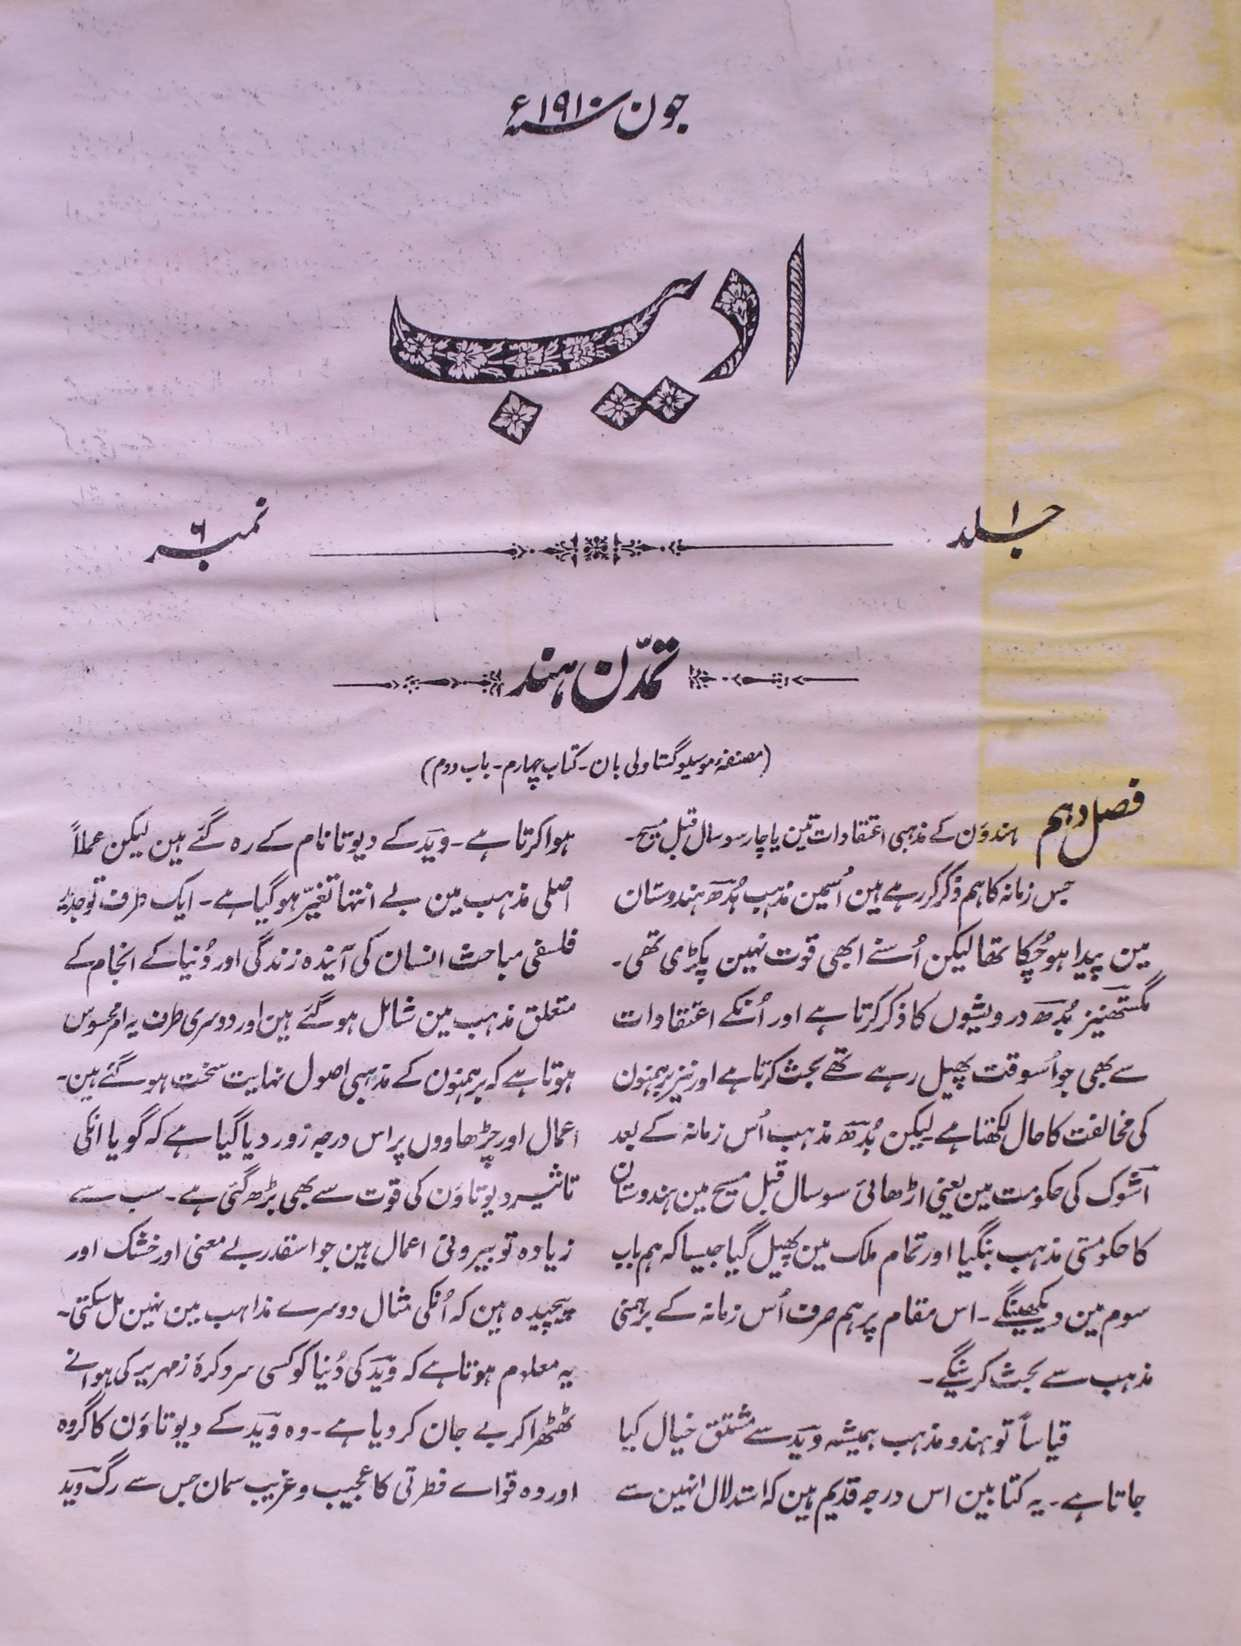 جون سنہ ۱۹۱۰ء
ادیب
جلد ۱
نمبر ۶
تمدّن ہند
(مصنفۂ موسیو گستاولی بان - کتاب چہارم - باب دوم)
فصل دہم ہندوؤن کے مذہبی اعتقادات تین یا چار سو سال قبل مسیح -
جس زمانہ کا ہم ذکر کر رہے ہین اُسمین مذہب بُدھ ہندوستان
مین پیدا ہو چُکا تھا لیکن اُسنے ابھی قوت نہین پکڑی تھی -
مگستھنیز بُدھ درویشوں کا ذکر کرتا ہے اور اُنکے اعتقادات
سے بھی جو اُسوقت پھیل رہے تھے بحث کرتا ہے اور نیز برہمنون
کی مخالفت کا حال لکھتا ہے لیکن بُدھ مذہب اُس زمانہ کے بعد
اشوک کی حکومت مین یعنی اڑھائی سو سال قبل مسیح مین ہندوستان
کا حکومتی مذہب بنگیا اور تمام ملک مین پھیل گیا جیسا کہ ہم باب
سوم مین دیکھینگے - اس مقام پر ہم صرف اُس زمانہ کے برہمنی
مذہب سے بحث کرینگے -
قیاساً تو ہندو مذہب ہمیشہ وید سے مشتق خیال کیا
جاتا ہے - یہ کتابین اس درجہ قدیم ہین کہ استدلال انہین سے
ہوا کرتا ہے - وید کے دیوتا نام کے رہ گئے ہین لیکن عملاً
اصلی مذہب مین بے انتہا تغیّر ہو گیا ہے - ایک طرف تو جدید
فلسفی مباحث انسان کی آیندہ زندگی اور دُنیا کے انجام کے
متعلق مذہب مین شامل ہو گئے ہین اور دوسری طرف یہ امر محسوس
ہوتا ہے کہ برہمنون کے مذہبی اصول نہایت سخت ہو گئے ہین -
اعمال اور چڑھاووں پر اس درجہ زور دیا گیا ہے کہ گویا انکی
تاثیر دیوتاؤن کی قوت سے بھی بڑھ گئی ہے - سب سے
زیادہ تو بیرونی اعمال ہین جو اسقدر بے معنی اور خشک اور
پیچیدہ ہین کہ اُنکی مثال دوسرے مذاہب مین نہین مل سکتی -
یہ معلوم ہوتا ہے کہ وید کی دُنیا کو کسی سرد کرۂ زمہریر کی ہوا نے
ٹھٹھرا کر بے جان کر دیا ہے - وہ وید کے دیوتاؤن کا گروہ
اور وہ قوائے فطرتی کا عجیب و غریب سمان جس سے رگ وید